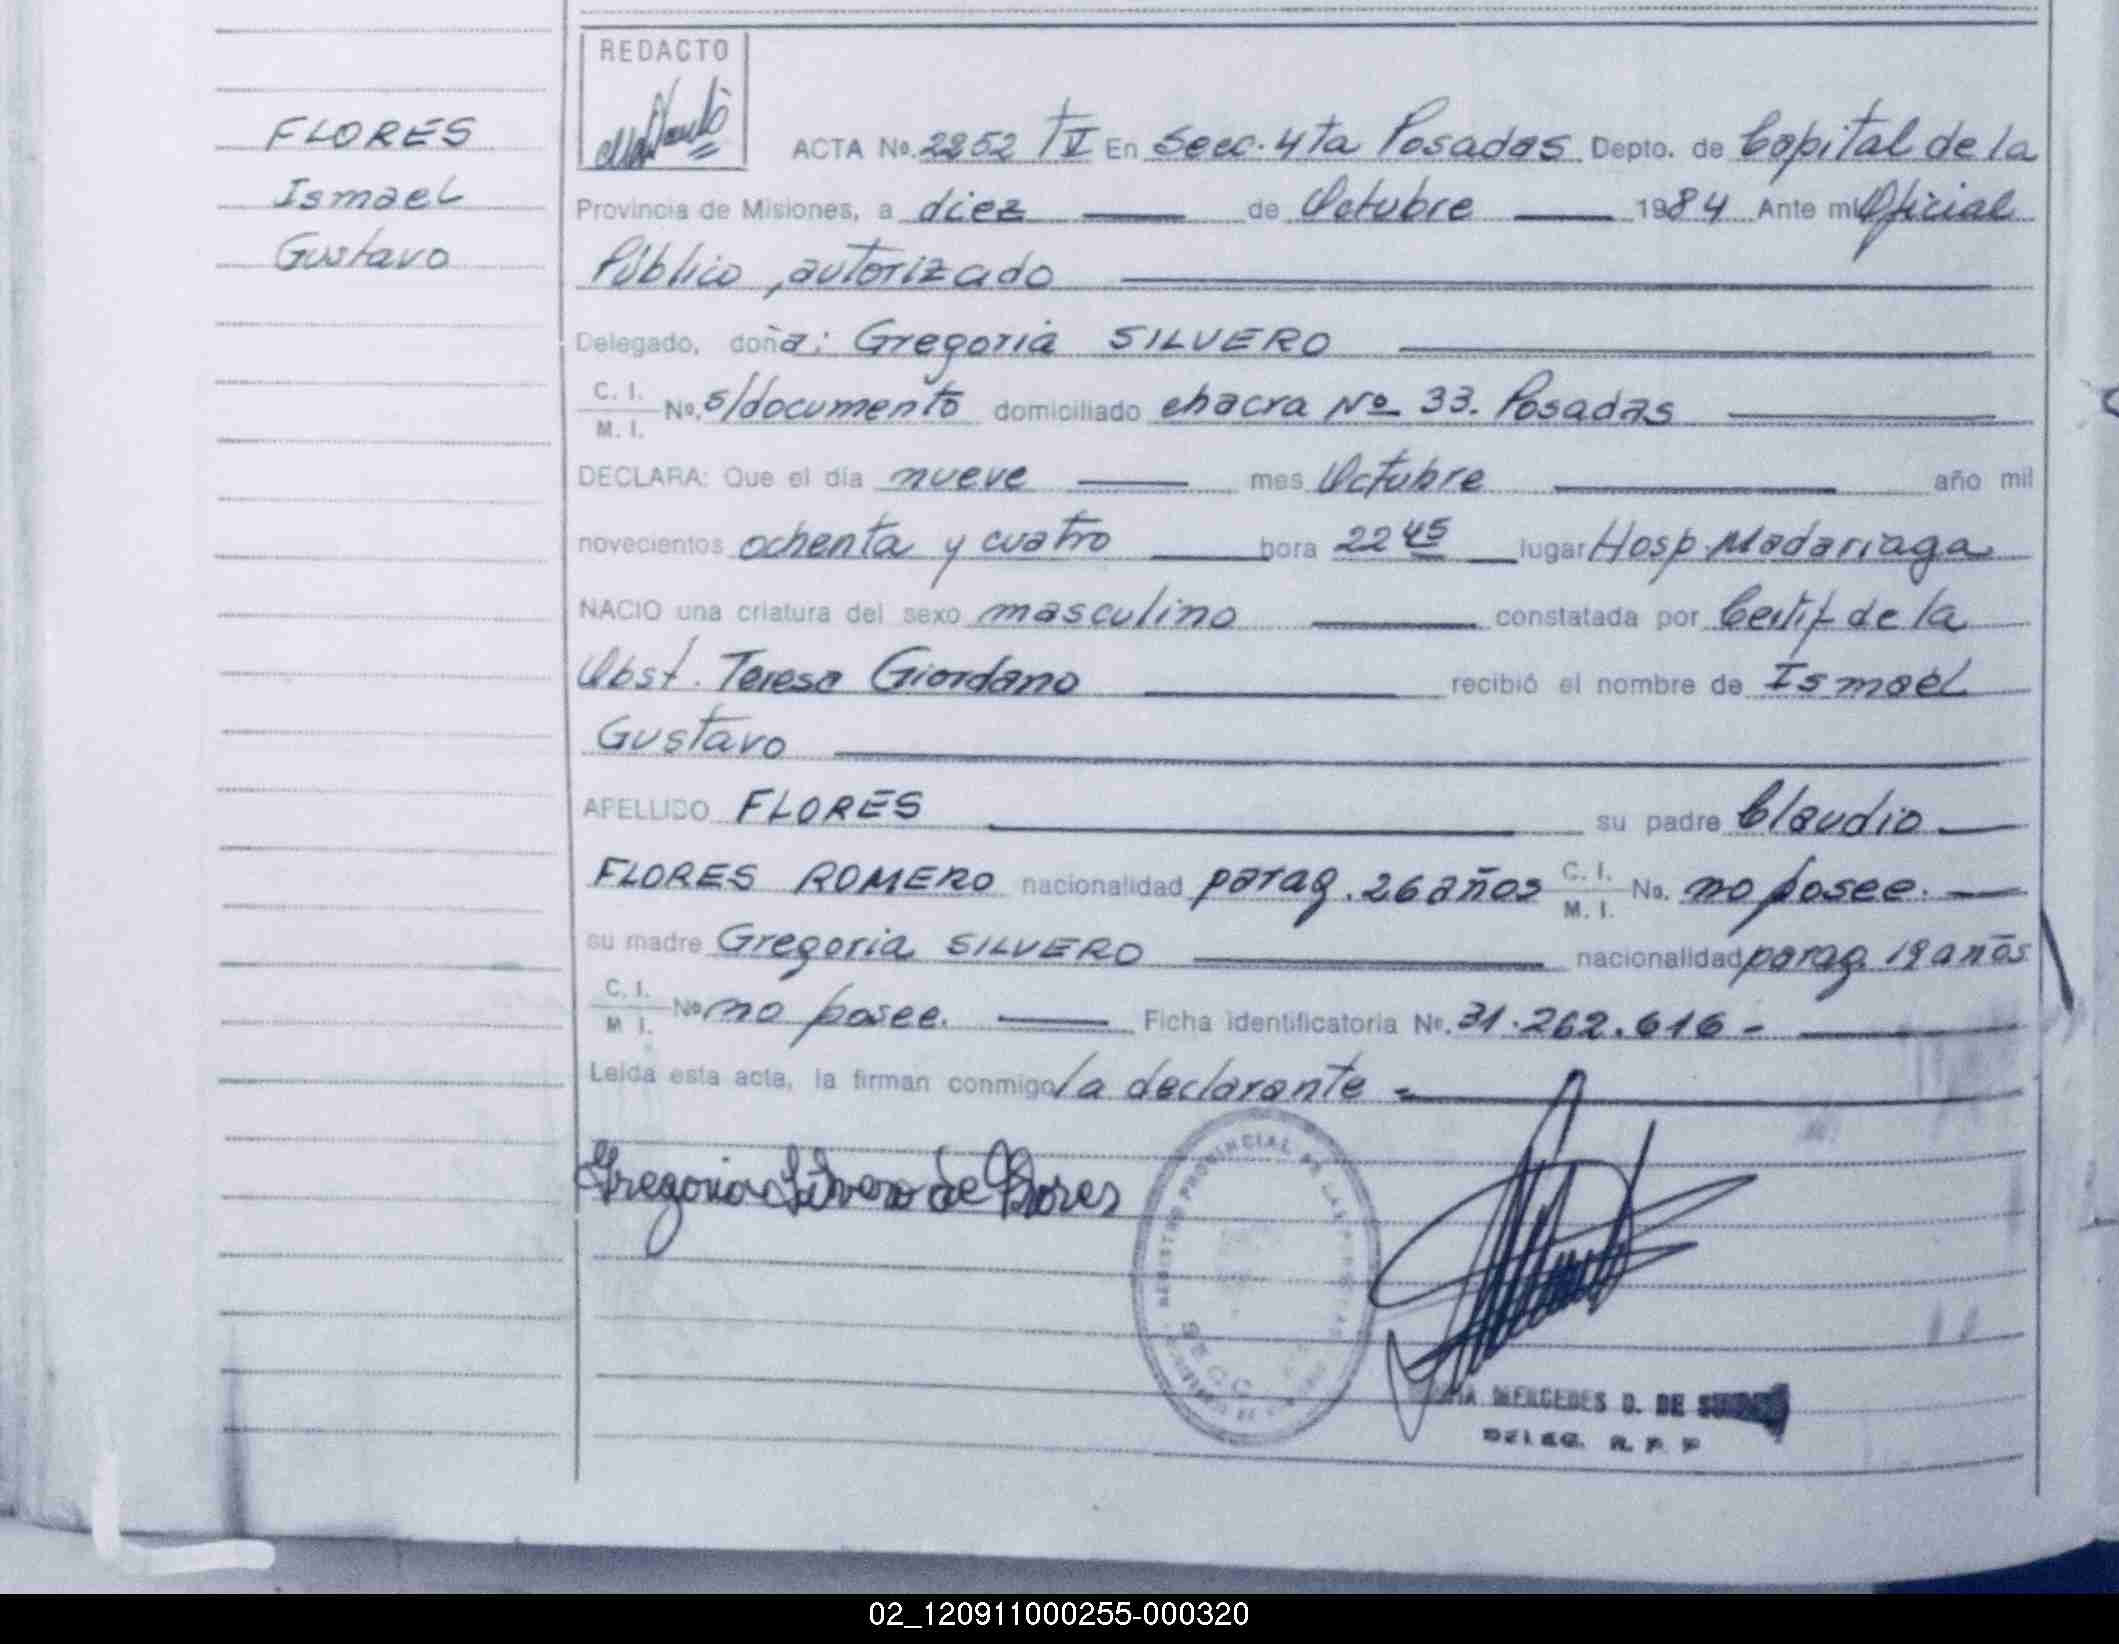 REDACTO
FLORES
Ismael
Gustavo
ACTA No. 2252 TV En Secc. 4ta Posadas Depto. de Capital de la
Provincia de Misiones, a diez de Octubre 1984 Ante mi Oficial
Público, autorizado
Delegado, doña: Gregoria SILVERO
C. I.
M. I. No. s/documento domiciliado chacra Nº 33. Posadas
DECLARA: Que el día nueve mes Octubre año mil
novecientos ochenta y cuatro hora 22 45 lugar Hosp. Madariaga
NACIO una criatura del sexo masculino constatada por Certif de la
Obst. Teresa Giordano recibió el nombre de Ismael
Gustavo
APELLIDO FLORES su padre Claudio
FLORES ROMERO nacionalidad parag. 26 años C. I. M. I. No. no posee.
su madre Gregoria SILVERO nacionalidad parag. 19 años
C. I. M. I. No no posee. Ficha identificatoria No. 31.262.616 -
Leída esta acta, la firman conmigo la declarante =
Gregoria Silvero de Flores
REGISTRO PROVINCIAL DE LAS PERSONAS
MERCEDES D. DE
DELEG. R. P. P
02_120911000255-000320